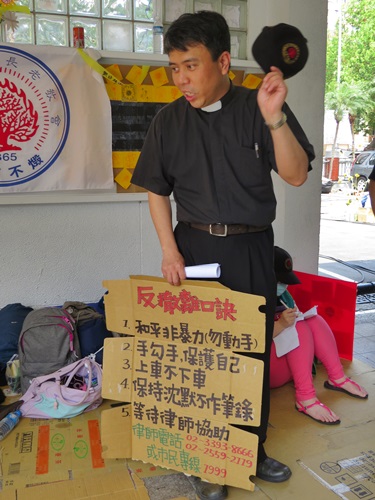 長老教會
1865
不燬
反驅離口訣
1. 和平非暴力(勿動手)
2. 手勾手,保護自己
3. 上車不下車
4. 保持沈默不作筆錄
5. 等待律師協助
律師電話 02-3393-8866
02-2559-2119
或市民專線 1999